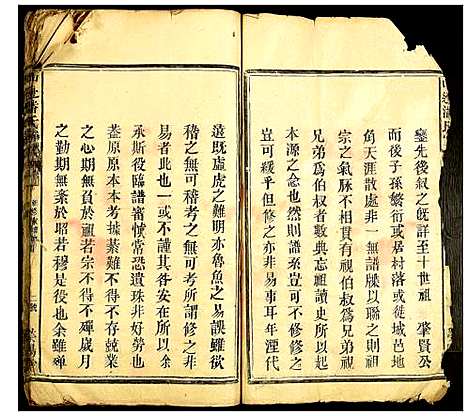 鑒先後敘之旣詳至十世祖　肇賢公
而後子孫繁衍或居村落或徙城邑地
角天涯散處非一無譜牒以聯之則祖
宗之氣脉不相貫有視伯叔爲兄弟視
兄弟爲伯叔者數典忘祖讀史所以探
本源之念也然則譜
豈可緩乎但修亦非易事耳年湮代
遠旣虛虎之難明亦魯魚之易誤雖欲
稽之無可稽考之無可考所謂修之非
易者此也一或不謹其咎安在所以余
承斯役臨譜審愼常恐遺珠非好勞也
葢原原本本考據綦難不得不存兢業
之無已負於祖若宗不得不殫歲月
之勤期無紊於昭若穆是役也余雖殫